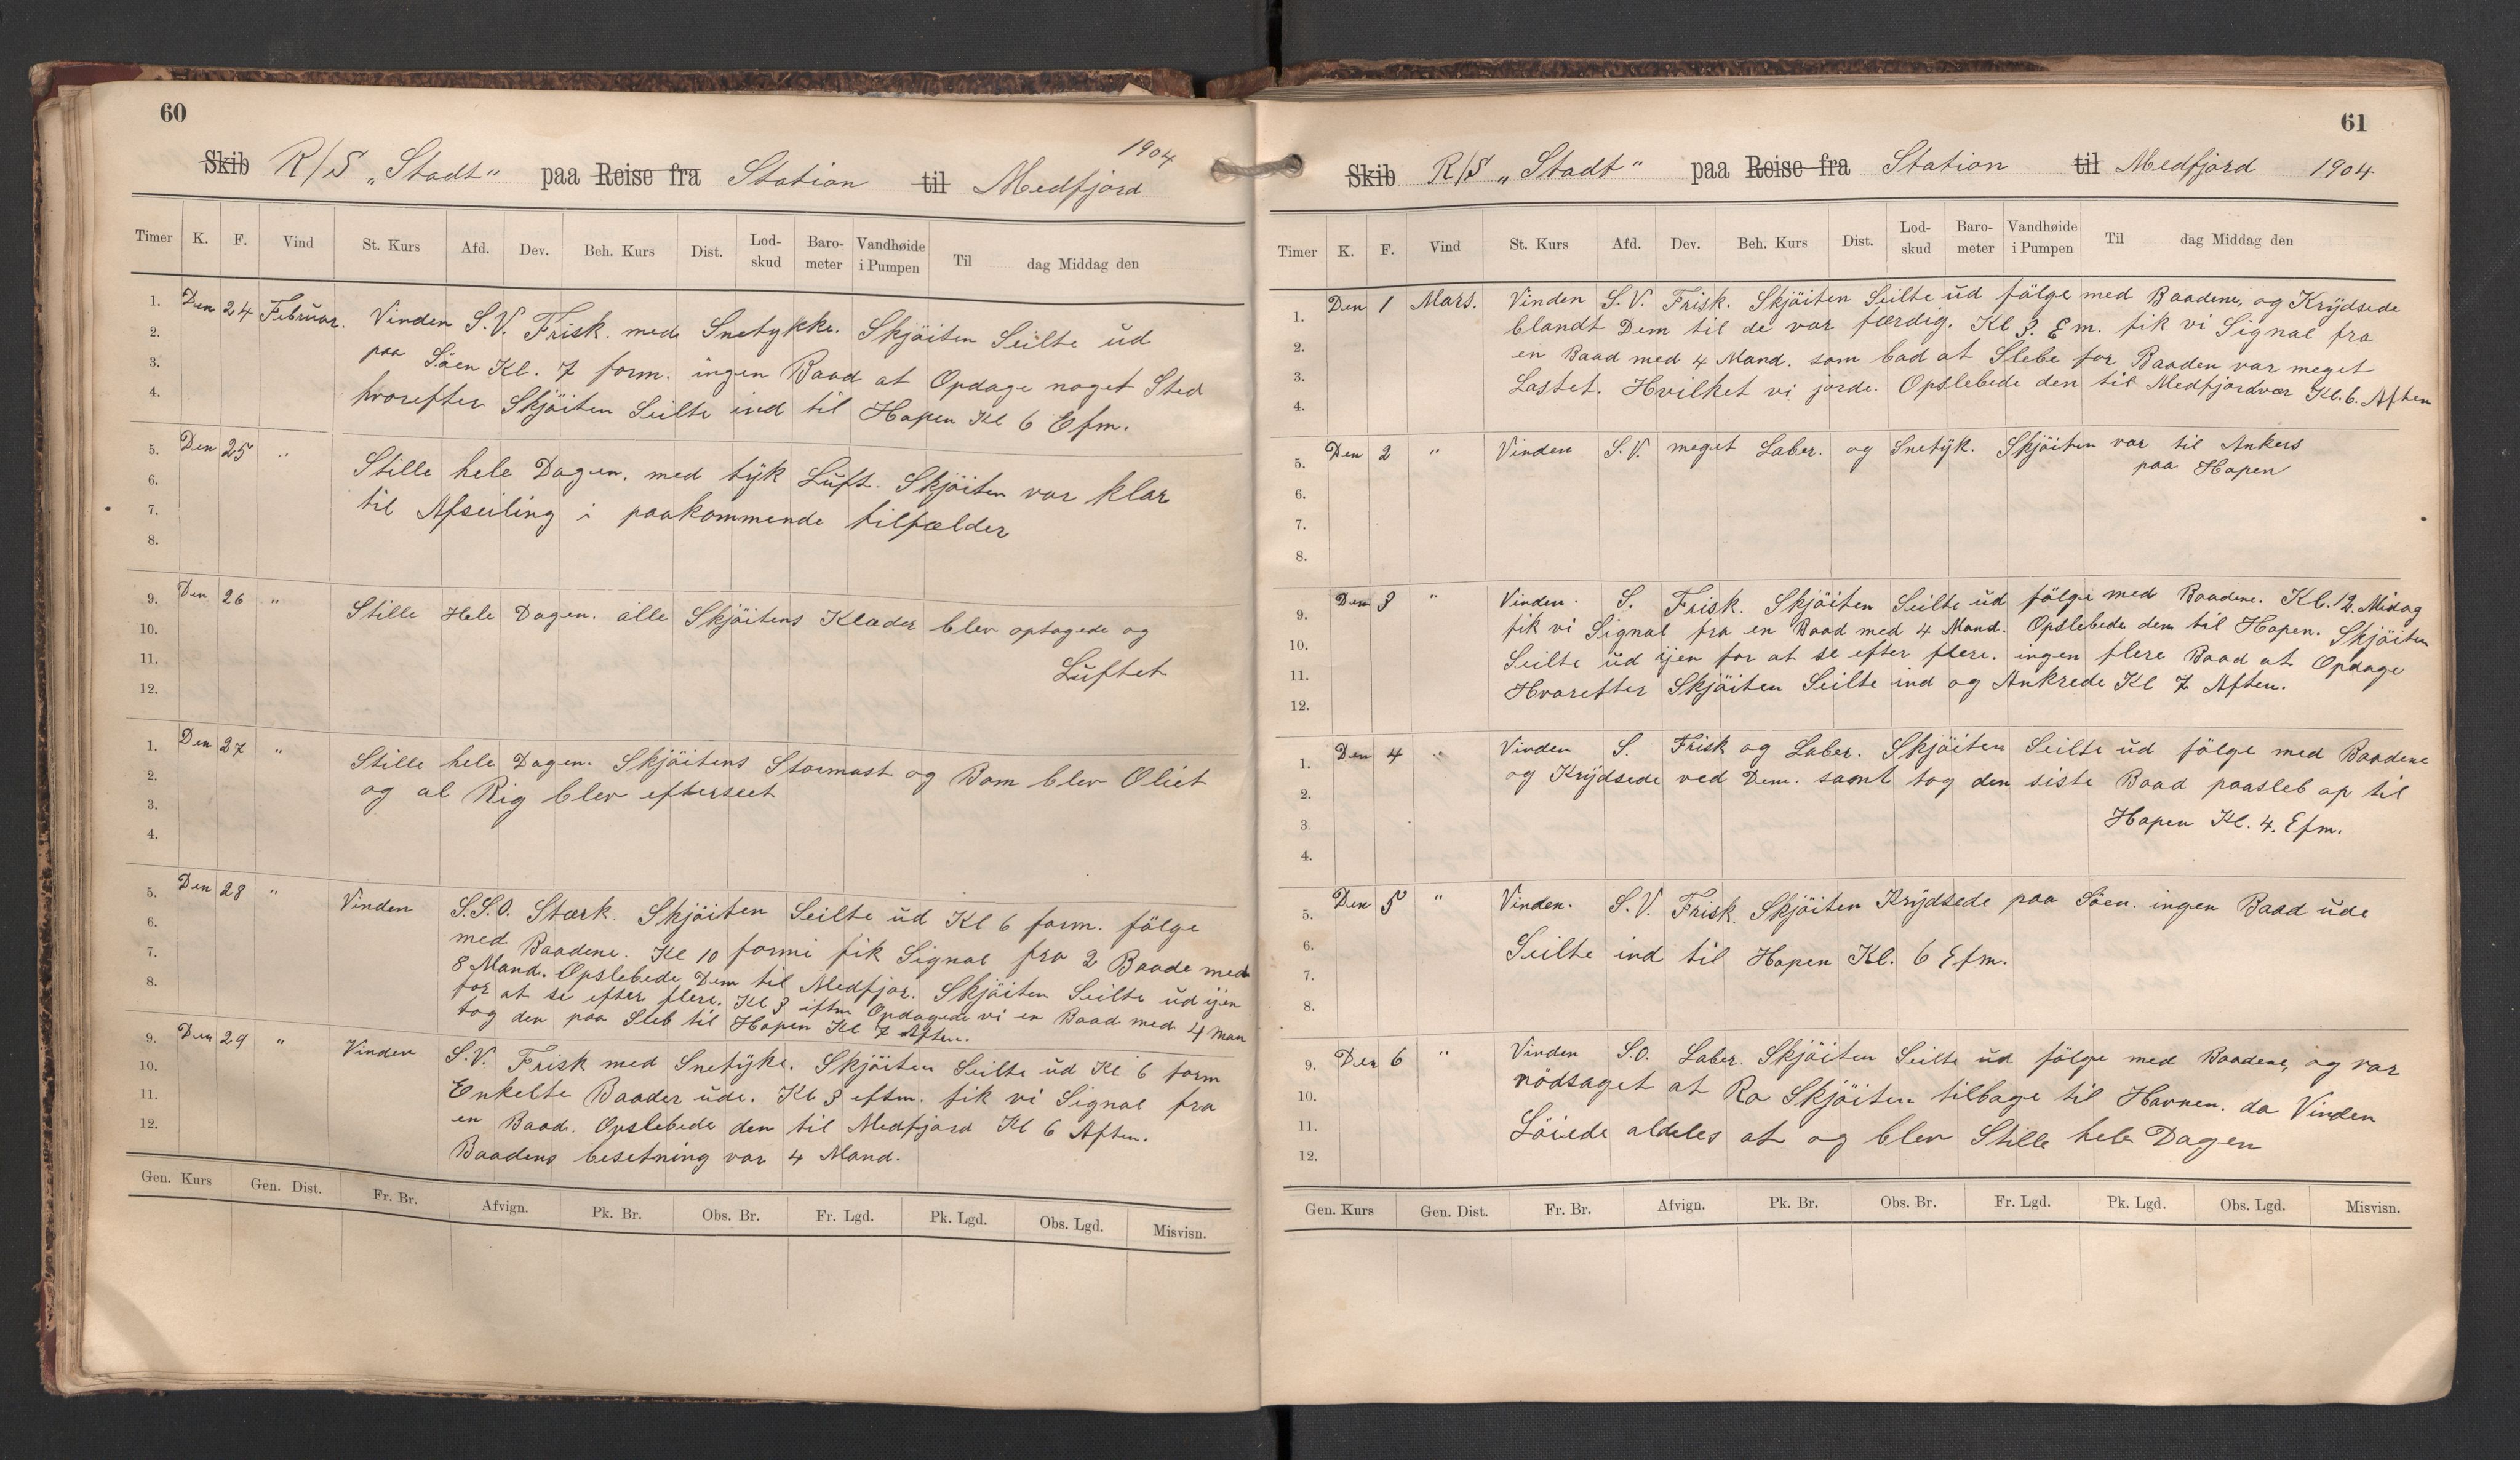 60
1904
Skib R/S „Stadt" paa Reise fra Station til Medfjord
Timer K. F. Vind St. Kurs Afd. Dev. Beh. Kurs Dist. Lod-skud Baro-meter Vandhøide i Pumpen Til dag Middag den
1. Den 24 Februar. Vinden S.V. Frisk. med Snetykke. Skjöiten Seilte ud
2. paa Söen Kl. 7 form. ingen Baad at Opdage noget Sted
3. hvorefter Skjöiten Seilte ind til Hopen Kl 6 Efm.
4.
5. Den 25 " Stille hele Dagen. med tyk Luft. Skjöiten var klar
6. til Afseiling i paakommende tilfælder
7.
8.
9. Den 26 " Stille Hele Dagen. alle Skjöitens Klæder blev optagede og
10. Luftet
11.
12.
1. Den 27 " Stille hele Dagen. Skjöitens Stormast og Bom blev Oliet
2. og al Rig blev efterseet
3.
4.
5. Den 28 " Vinden S.S.O. Stærk. Skjöiten Seilte ud Kl 6 form. fölge
6. med Baadene. Kl 10 formi fik Signal fra 2 Baade med
7. 8 Mand. Opslebede Dem til Medfjor. Skjöiten Seilte ud ijen
8. for at se efter flere. Kl 3 eftm Opdagede vi en Baad med 4 Man
tog den paa Sleb til Hopen Kl 7 Aften.
9. Den 29 " Vinden S.V. Frisk med Snetyke. Skjöiten Seilte ud Kl 6 form
10. Enkelte Baader ude. Kl 3 eftm. fik vi Signal fra
11. en Baad. Opslebede den til Medfjord Kl 6 Aften.
12. Baadens besetning var 4 Mand.
Gen. Kurs Gen. Dist. Fr. Br. Afvign. Pk. Br. Obs. Br. Fr. Lgd. Pk. Lgd. Obs. Lgd. Misvisn.
61
Skib R/S „Stadt" paa Reise fra Station til Medfjord 1904
Timer K. F. Vind St. Kurs Afd. Dev. Beh. Kurs Dist. Lod-skud Baro-meter Vandhøide i Pumpen Til dag Middag den
1. Den 1 Mars. Vinden S.V. Frisk. Skjöiten Seilte ud fölge med Baadene, og Krydsede
2. blandt Dem til de var færdig. Kl 3. Em. fik vi Signal fra
3. en Baad med 4 Mand. som bad at Slebe for Baaden var meget
4. Lastet. Hvilket vi jorde. Opslebede den til Medfjordvær Kl. 6. Aften
5. Den 2 " Vinden S.V. meget Laber. og Snetyk. Skjöiten var til Ankers
6. paa Hopen
7.
8.
9. Den 3 " Vinden. S. Frisk. Skjöiten Seilte ud fölge med Baadene. Kl. 12. Midag
10. fik vi Signal fra en Baad med 4 Mand. Opslebede dem til Hopen. Skjöiten
11. Seilte ud ijen for at se efter flere. ingen flere Baad at Opdage
12. Hvorefter Skjöiten Seilte ind og Ankrede Kl 7 Aften.
1. Den 4 " Vinden S. Frisk og Laber. Skjöiten Seilte ud fölge med Baadene
2. og Krydsede ved Dem. samt tog den siste Baad paasleb op til
3. Hopen Kl. 4. Efm.
4.
5. Den 5 " Vinden. S.V. Frisk. Skjöiten Krydsede paa Söen. ingen Baad ude
6. Seilte ind til Hopen Kl. 6 Efm.
7.
8.
9. Den 6 " Vinden S.O. Laber. Skjöiten Seilte ud fölge med Baadene, og var
10. nödsaget at Ro Skjöiten tilbage til Havnen. da Vinden
11. Löiede aldeles af og blev Stille hele Dagen
12.
Gen. Kurs Gen. Dist. Fr. Br. Afvign. Pk. Br. Obs. Br. Fr. Lgd. Pk. Lgd. Obs. Lgd. Misvisn.